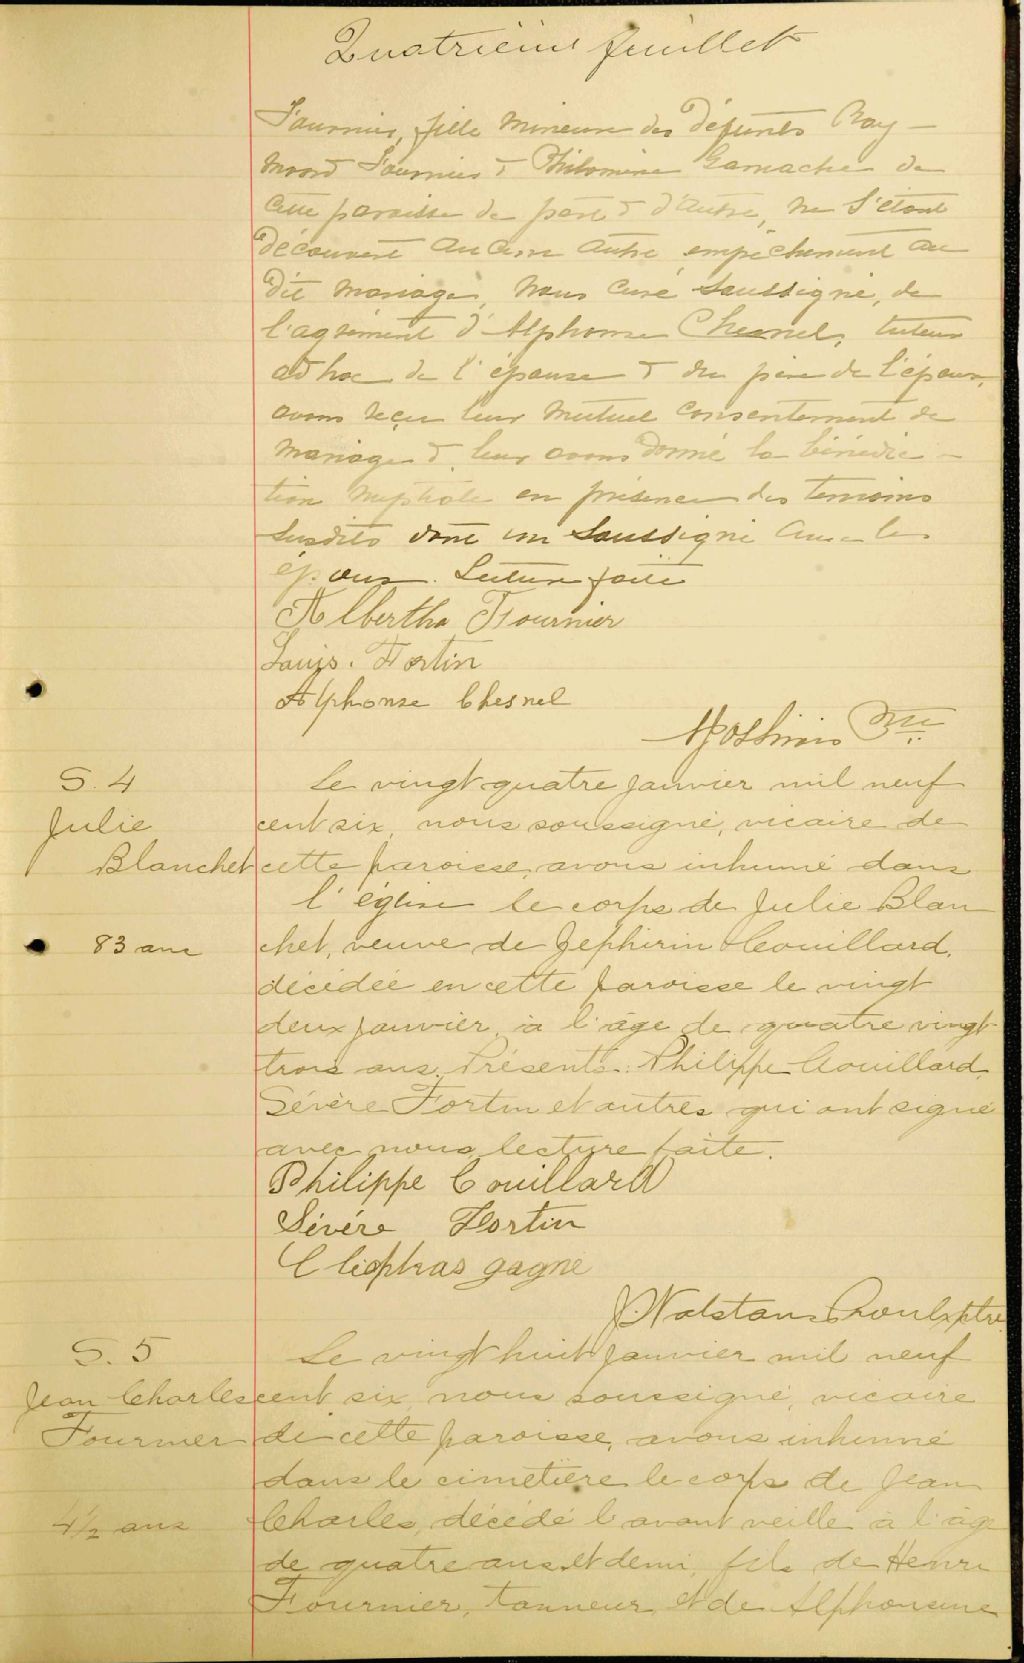 Quatrième feuillet
Fournier, fille mineure des défunts Ray-
mond Fournier & Philomène Gamache de
cette paroisse de part & d'autre, ne s'étant
découvert aucun autre empêchement au
dit mariage, Nous curé soussigné, de
l'agrément d'Alphonse Chesnel, tuteur
ad hoc de l'épouse & du père de l'époux,
avons reçu leur mutuel consentement de
mariage & leur avons donné la bénédic-
tion nuptiale en présence des témoins
susdits dont un soussigné avec les
époux. Lecture faite
Albertha Fournier
Louis. Fortin
Alphonse Chesnel
Ptre
S. 4
Julie
Blanchet
83 ans
Le vingt quatre janvier mil neuf
cent six, nous soussigné, vicaire de
cette paroisse, avons inhumé dans
l'église le corps de Julie Blan
chet, veuve de Zephirin Couillard,
décédée en cette paroisse le vingt
deux janvier, à l'âge de quatre vingt
trois ans. Présents: Philippe Couillard,
Sévère Fortin et autres qui ont signé
avec nous, lecture faite.
Philippe Couillard
Sévére Fortin
Cléophas gagné
J. Wolstan Proulx ptre
S. 5
Jean Charles
Fournier
4 1/2 ans
Le vingt huit janvier mil neuf
cent six, nous soussigné, vicaire
de cette paroisse, avons inhumé
dans le cimetière le corps de Jean
Charles, décédé l'avant veille à l'âge
de quatre ans et demi, fils de Henri
Fournier, tanneur, et de Alphonsine